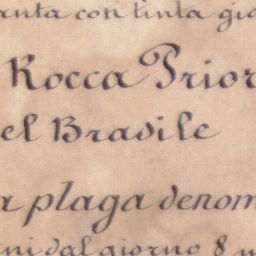 anta con tinta gia
Rocca Prior
el Brasile
a plaga denom
ni dal giorno 8 m